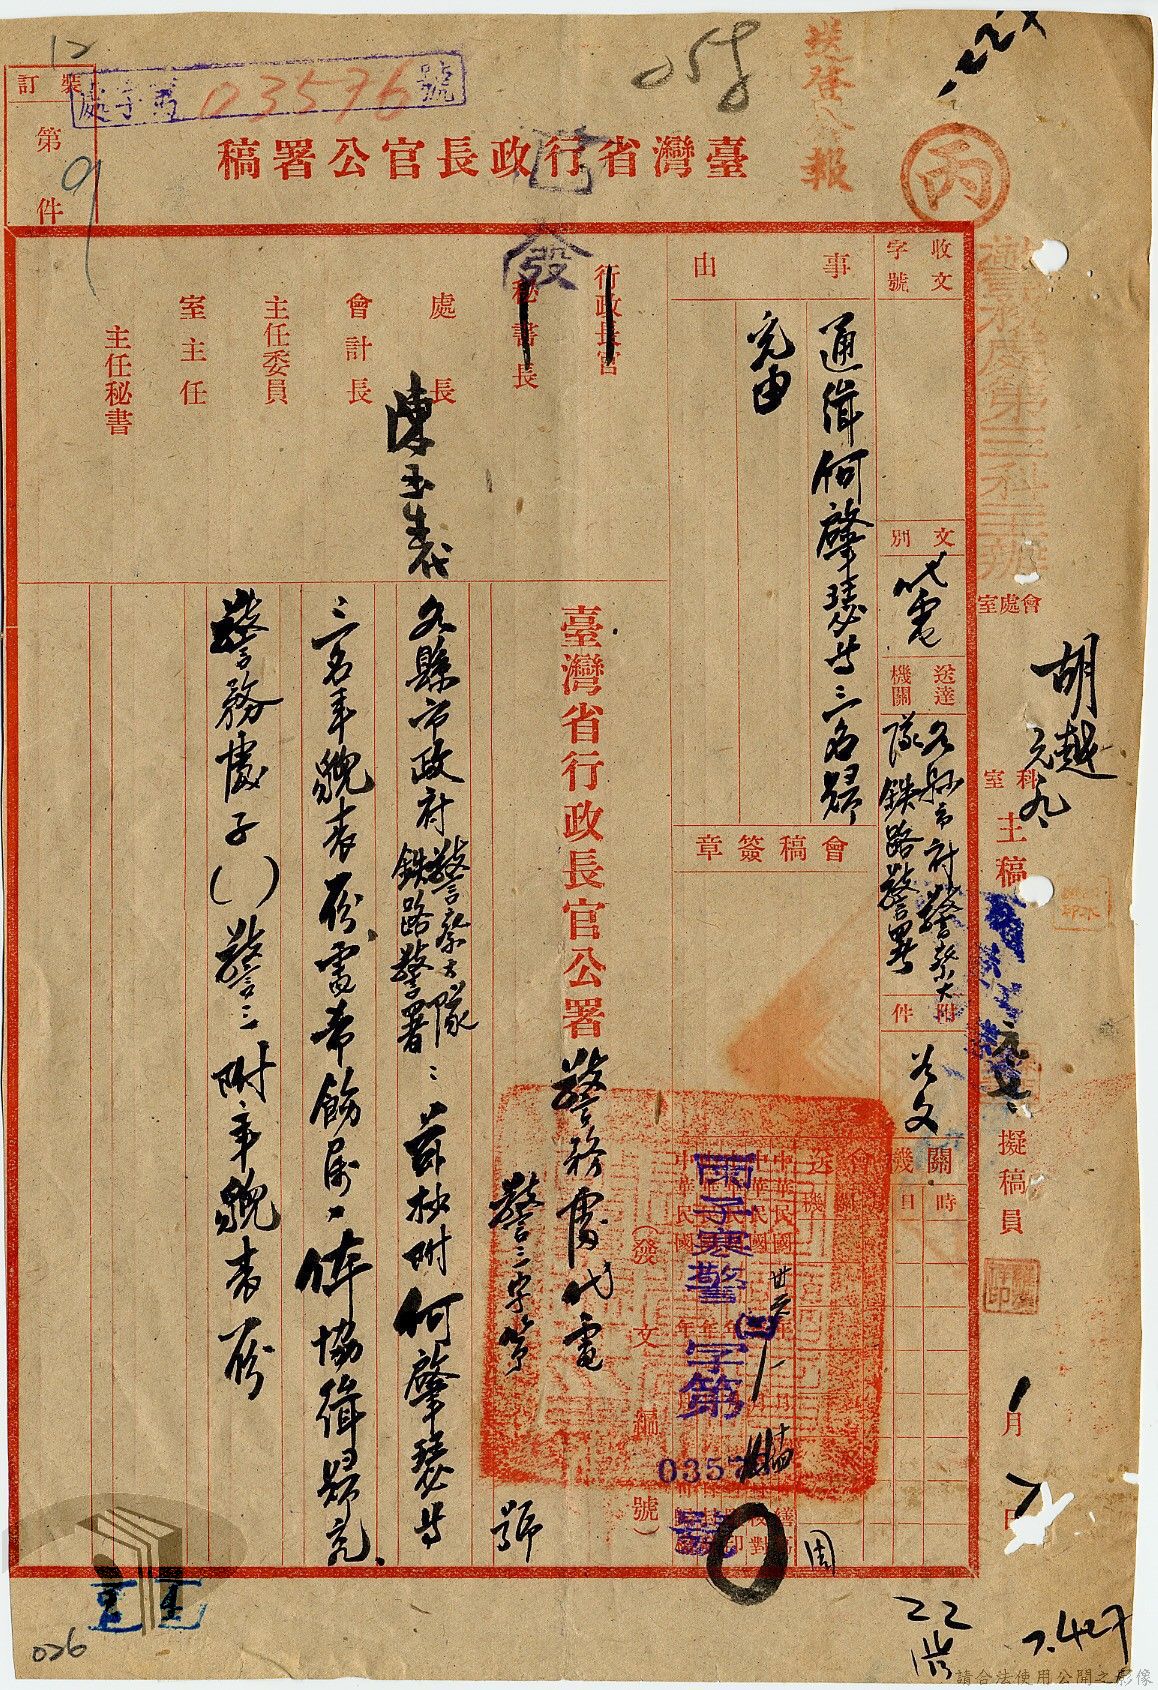 送登公報
丙
臺灣省行政長官公署稿
處字第03576號
裝訂
第9件
12
058
警務處第三科主辦
會處室
胡越
元九
科室
主稿
擬稿員
1月7日
收文字號
文別
代電
送達機關
各縣市府警察大隊鉄路警署
附件
如文
事由
通緝何肇瑟等三名歸
究由
會稿簽章
行政長官
秘書長
處長
會計長
主任委員
室主任
主任秘書
發
臺灣省行政長官公署警務處代電
警三字第 號
(發文編號)
丙子寒警(三)字第
號
各縣市政府警察大隊鉄路警署:茲抄附何肇瑟等
三名年貌表一份電希飭屬一体協緝歸究
警務處子()警三附年貌表一份
周
22
7.427
026
請合法使用公開之影像